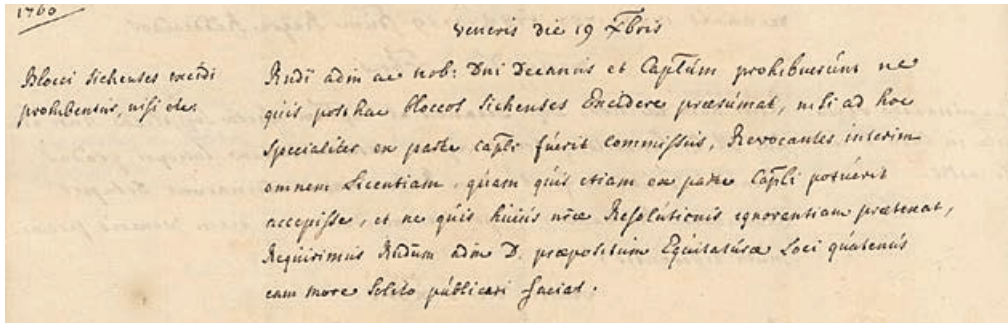 1760
Veneris die 19 Xbris
Blocci Sichenses excidi
prohibentur, nisi etc.
Rudi adm ac nob: Dni Decanus et Captúm prohibuerúnt ne
quis posthac bloccos Sichenses Excidere præsúmat, nisi ad hoc
specialiter ex parte Capli fúerit Commissus, Revocantes interim
omnem Licentiam, quam quis etiam ex parte Capli potúerit
accepisse, et ne quis húiús nræ Resolútionis ignorantiam prætexat,
Requirimus Rudúm adm D. præpositúm Equitatúræ Loci quatenús
eam more Solito públicari faciat.